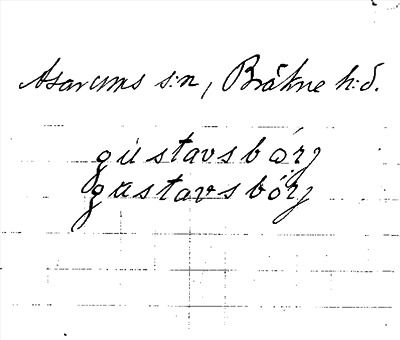 Asarums s:n, Bräkne h:d.
gustavsbórj
gustavsbórj